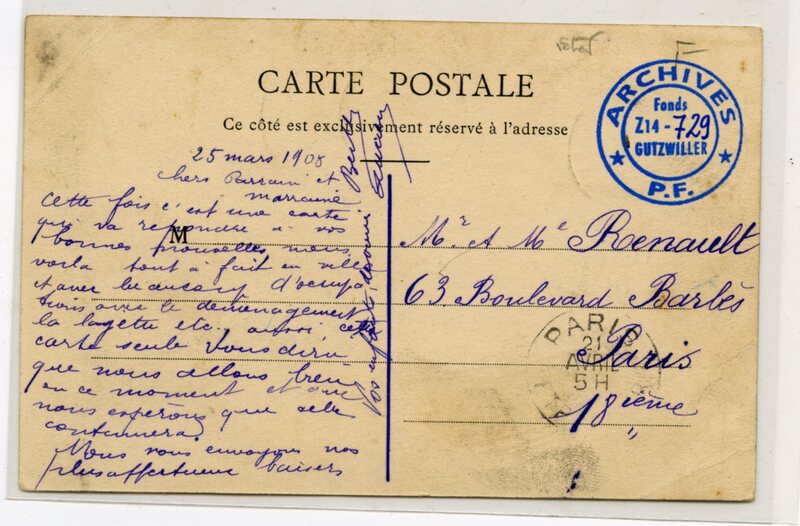 CARTE POSTALE
Ce côté est exclusivement réservé à l'adresse
ARCHIVES
Fonds
Z14-729
GUTZWILLER
P.F.
25 mars 1908
chers Parrain et
marraine
Cette fois c'est une carte
qui va repondre à vos
bonnes nouvelles nous
voila tout à fait en ville
et avec beaucoup d'occupa
tions avec le demenagement
la layette etc. aussi cette
carte seule vous dira
que nous allons bien
en ce moment et que
nous esperons que cela
continuera.
Nous vous envoyons nos
plus affectueux baisers
Vos enfants
Berthe
M
Mr et Me Renault
63 Boulevard Barbès
Paris
18ième
PARIS
21
AVRIL
5H